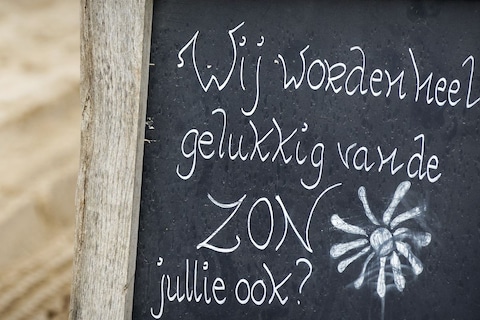 Wij worden heel
gelukkig van de
ZON
jullie ook?